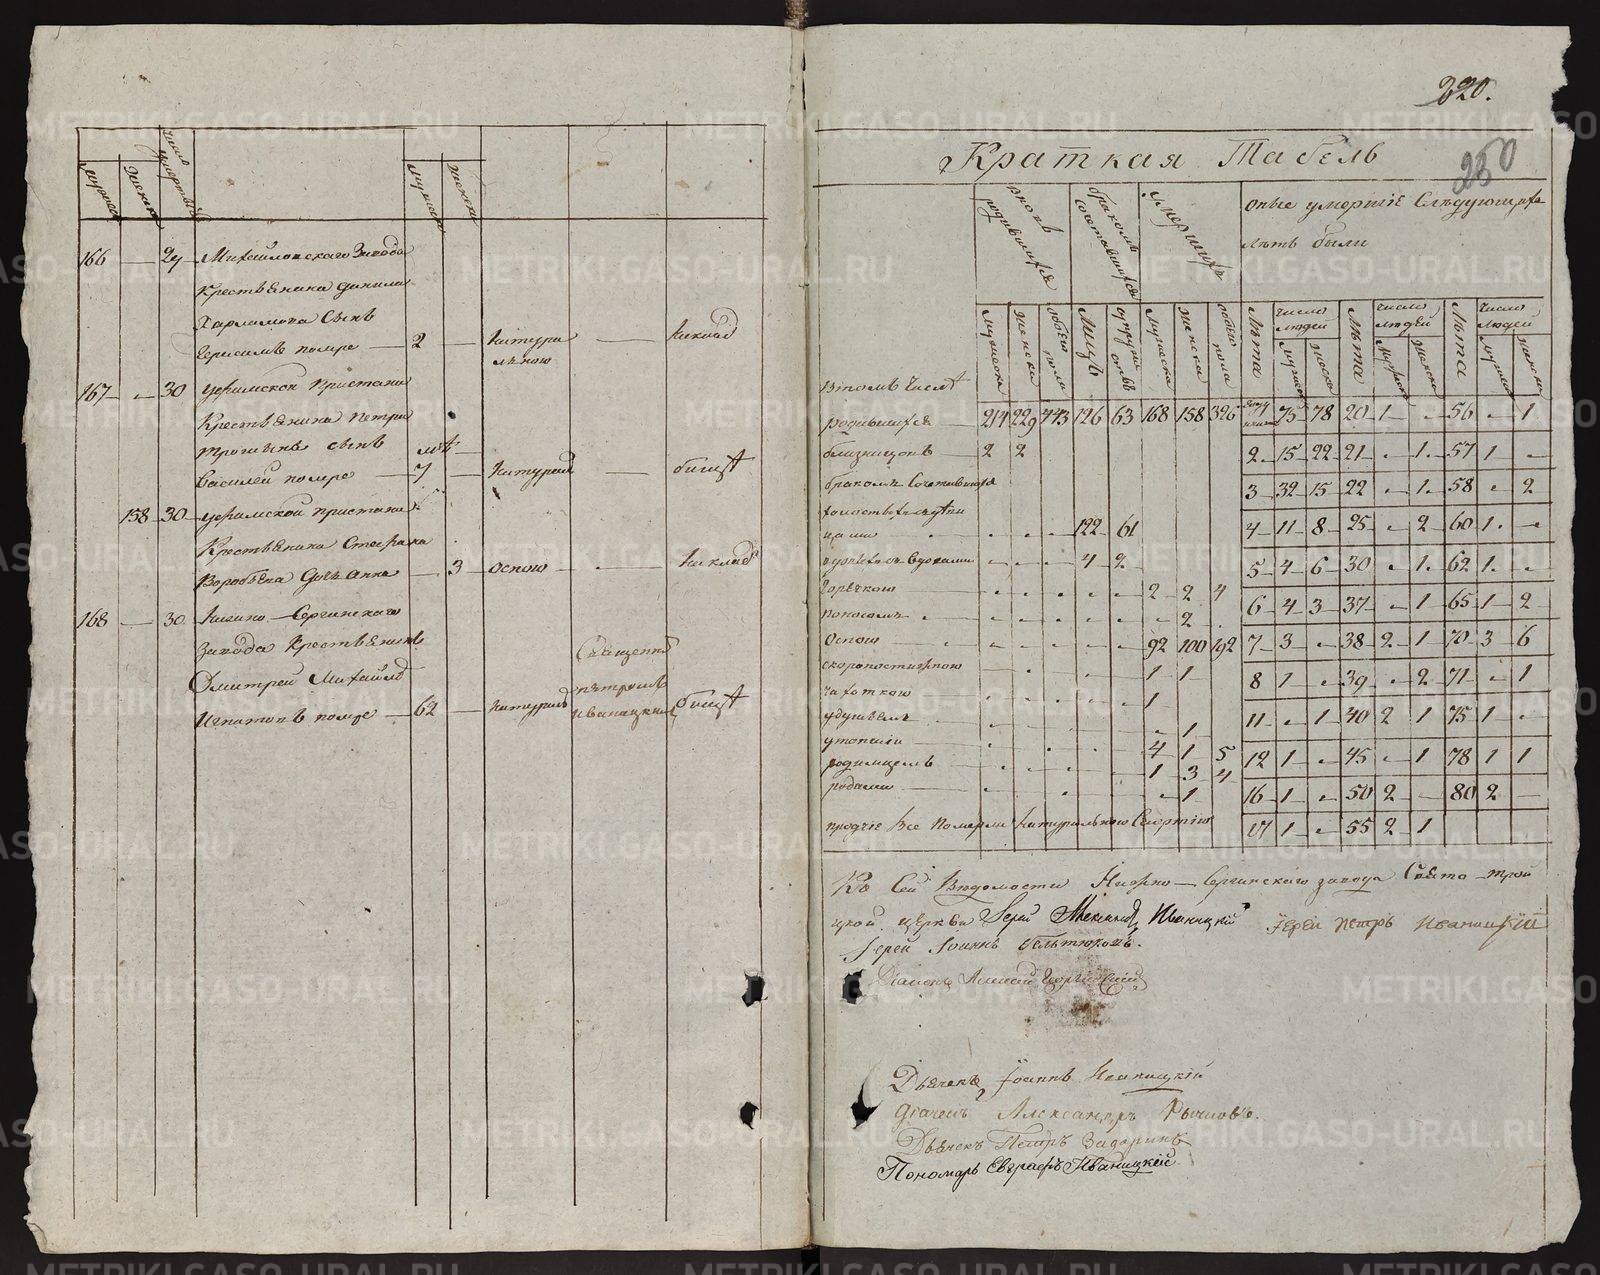 220.
250
мужеска
женска
число умершихъ
мужеска
женска
166 — 29 Михайловскаго Завода
Крестьянина Данила
Харламова Сынъ
Герасимъ помре — 2 — Натура
льною —
167 — 30 Уфимской Пристани
Крестьянина Петра
сынъ
Василей помре — 7 — Натурал —
158 30 Уфимской Пристани
Крестьянина Стефана
Воробьева Дочь Анна — 3 оспою —
168 — 30 Нижно-Сергинскаго
Завода Крестьянинъ
Дмитрей Михайловъ
Игнатовъ помре — 62 — Натурал
Священни
Петромъ
Иваницкимъ
Краткая Табель
вновь родившихся
бракомъ сочетавшихся
умершихъ
оные умершіе Следующихъ
летъ были
мужеска женска обоего пола лицъ супружествъ мужеска женска обоего пола
лета число людей лета число людей лета число людей
мужеска женска мужеска женска мужеска женска
Втомъ числѣ
родившихся 214 229 443 126 63 168 158 326 75 78 20 1 - 56 - 1
близнецовъ 2 2 2 15 22 21 - 1 57 1 -
бракомъ Сочетавшихся 3 32 15 22 - 1 58 - 2
холостыхъ
цами 122 61 4 11 8 25 - 2 60 1 -
вдовыхъ Совдовами 4 2 5 4 6 30 - 1 62 1 -
Горячкою 2 2 4 6 4 3 37 - 1 65 1 2
поносомъ 2
Оспою 92 100 192 7 3 - 38 2 1 70 3 6
скоропостижною 1 1 8 1 - 39 - 2 71 - 1
чахоткою 1
удушьемъ 1 11 - 1 40 2 1 75 1 -
утопшіи 4 1 5 12 1 - 45 - 1 78 1 1
родимцемъ 1 3 4
родами 1 16 1 - 50 2 - 80 2 -
протчіе Все Померли Натуральною Смертію 17 1 - 55 2 1
Ко Сей Вѣдомости Нижно-Сергинскаго завода Свято-трои
цкой церкви Іерей Иваницкій Іерей Петръ Иваницкій
Іерей Іоаннъ Бельтюковъ.
Діаконъ Алексей Георгіевскій
Дьячекъ Іоаннъ Иваницкій
Дьячекъ Александръ Рычковъ.
Дьячекъ Петръ Задоринъ
Пономарь Евграфъ Иваницкій
METRIKI.GASO-URAL.RU